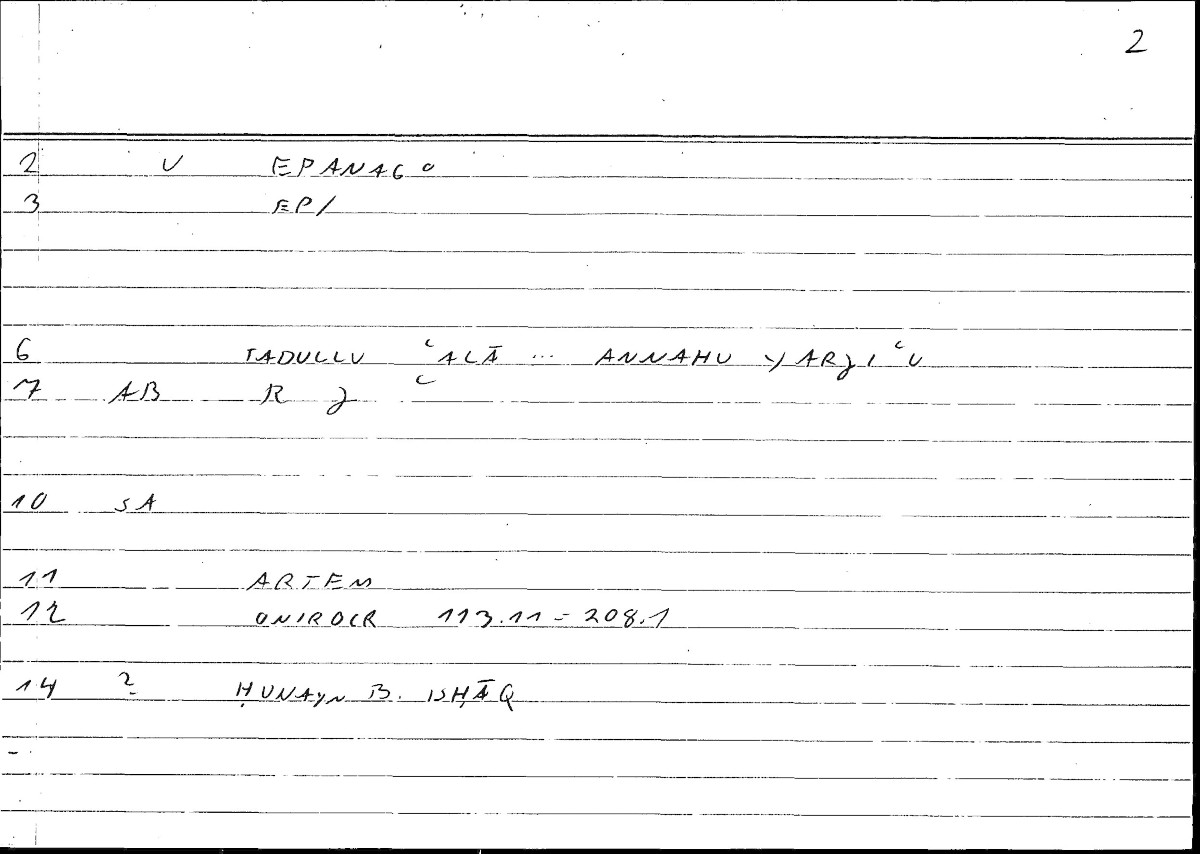 2
2 V EPANAGO
3 EP/
6 TADULLU ʿALĀ ... ANNAHU YARJIʿU
7 AB R J ʿ
10 SA
11 ARTEM
12 ONIROCR 113.11 = 208.1
14 ? ḤUNAYN B. ISḤĀQ